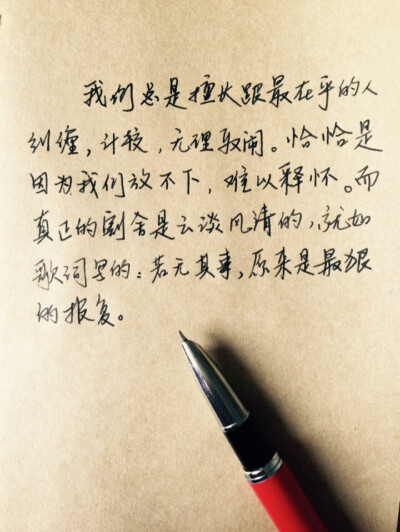 我们总是擅长跟最在乎的人
纠缠，计较，无理取闹。恰恰是
因为我们放不下，难以释怀。而
真正的割舍是云谈风清的，就如
歌词里的：若无其事，原来是最狠
的报复。